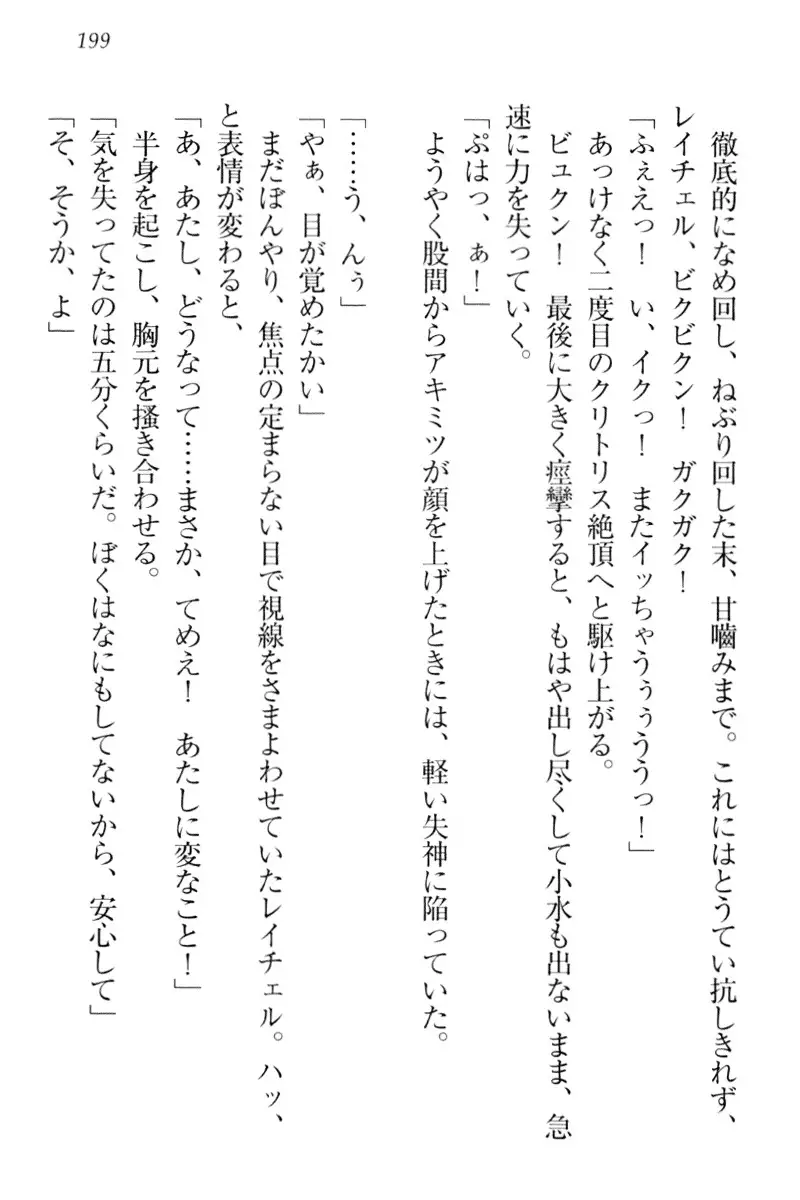 199
徹底的になめ回し、ねぶり回した末、甘嚙みまで。これにはとうてい抗しきれず、
レイチェル、ビクビクン！　ガクガク！
「ふぇえっ！　い、イクっ！　またイッちゃうぅぅううっ！」
あっけなく二度目のクリトリス絶頂へと駆け上がる。
ビュクン！　最後に大きく痙攣すると、もはや出し尽くして小水も出ないまま、急
速に力を失っていく。
「ぷはっ、ぁ！」
ようやく股間からアキミツが顔を上げたときには、軽い失神に陥っていた。
「……う、んぅ」
「やぁ、目が覚めたかい」
まだぼんやり、焦点の定まらない目で視線をさまよわせていたレイチェル。ハッ、
と表情が変わると、
「あ、あたし、どうなって……まさか、てめえ！　あたしに変なこと！」
半身を起こし、胸元を搔き合わせる。
「気を失ってたのは五分くらいだ。ぼくはなにもしてないから、安心して」
「そ、そうか、よ」